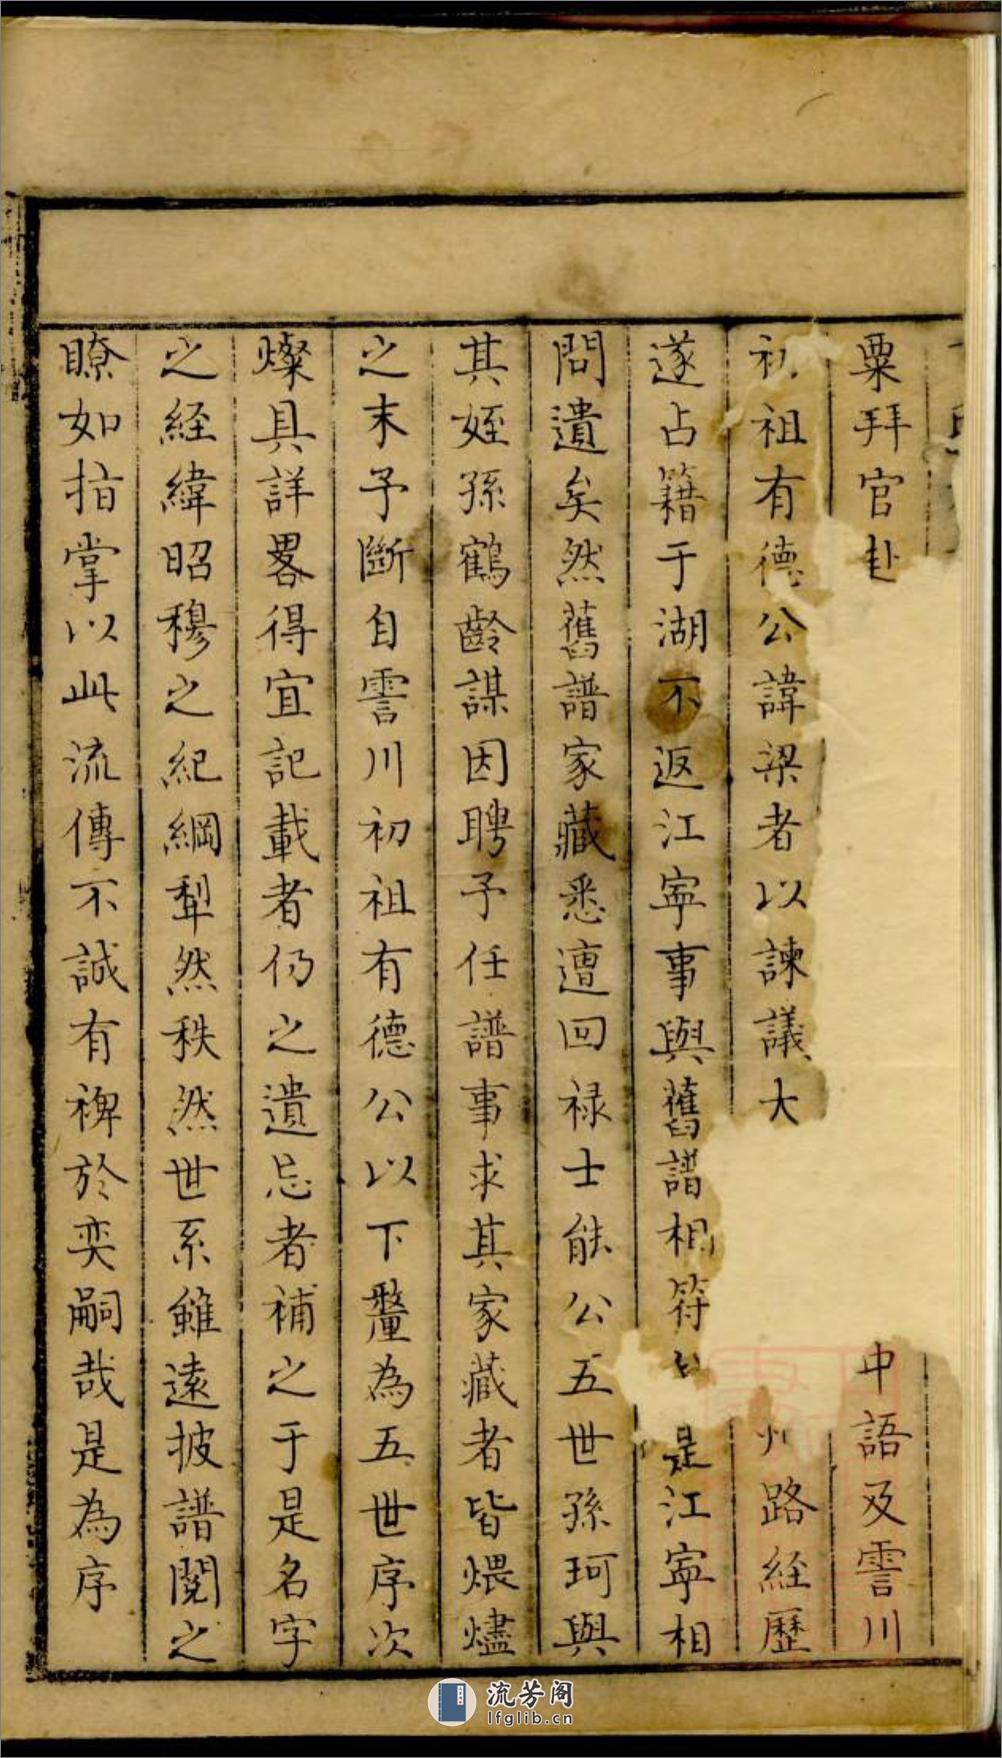 粟拜官赴中語及霅川
初祖有德公諱梁者以諫議大州路經歷
遂占籍于湖不返江寧事與舊譜相符是江寧相
問遺矣然舊譜家藏悉遭回禄士能公五世孫珂與
其姪孫鶴齡謀因聘予任譜事求其家藏者皆煨燼
之末予斷自霅川初祖有德公以下釐為五世序次
燦具詳畧得宜記載者仍之遺忘者補之于是名字
之經緯昭穆之紀綱犁然秩然世系雖遠披譜閱之
瞭如指掌以此流傳不誠有裨於奕嗣哉是為序
流芳阁
lfglib.cn